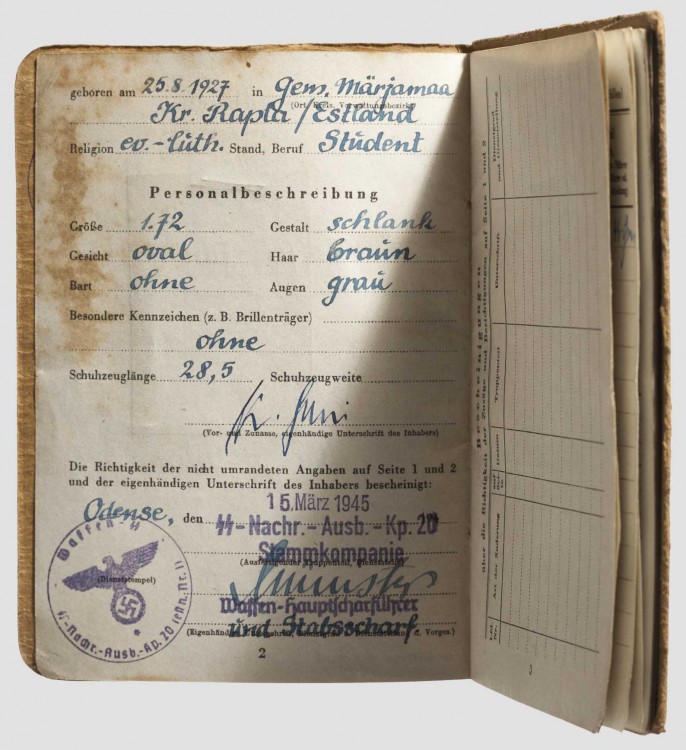 geboren am 25.8.1927 in Gem. Märjamaa
(Ort, Kreis, Verwaltungsbezirk)
Kr. Rapla/Estland
Religion ev.-luth. Stand, Beruf Student
Personalbeschreibung
Größe 1.72 Gestalt schlank
Gesicht oval Haar braun
Bart ohne Augen grau
Besondere Kennzeichen (z. B. Brillenträger)
ohne
Schuhzeuglänge 28,5 Schuhzeugweite
(Vor- und Zuname, eigenhändige Unterschrift des Inhabers)
Die Richtigkeit der nicht umrandeten Angaben auf Seite 1 und 2
und der eigenhändigen Unterschrift des Inhabers bescheinigt:
Odense, den 15. März 1945
SS-Nachr.-Ausb.-Kp. 20
Stammkompanie
(Ausfertigender Truppenteil, Dienststelle)
(Dienststempel)
Waffen-Hauptscharführer
und Stabsscharf
2
Waffen-SS
SS-Nachr.-Ausb.-Kp. 20
über die Richtigkeit der Zusätze und Berichtigungen auf Seite 1 und 2
Bescheinigungen
Lfd. Nr.
Art der Änderung
Datum
Truppenteil
Unterschrift
Dienstgrad
3